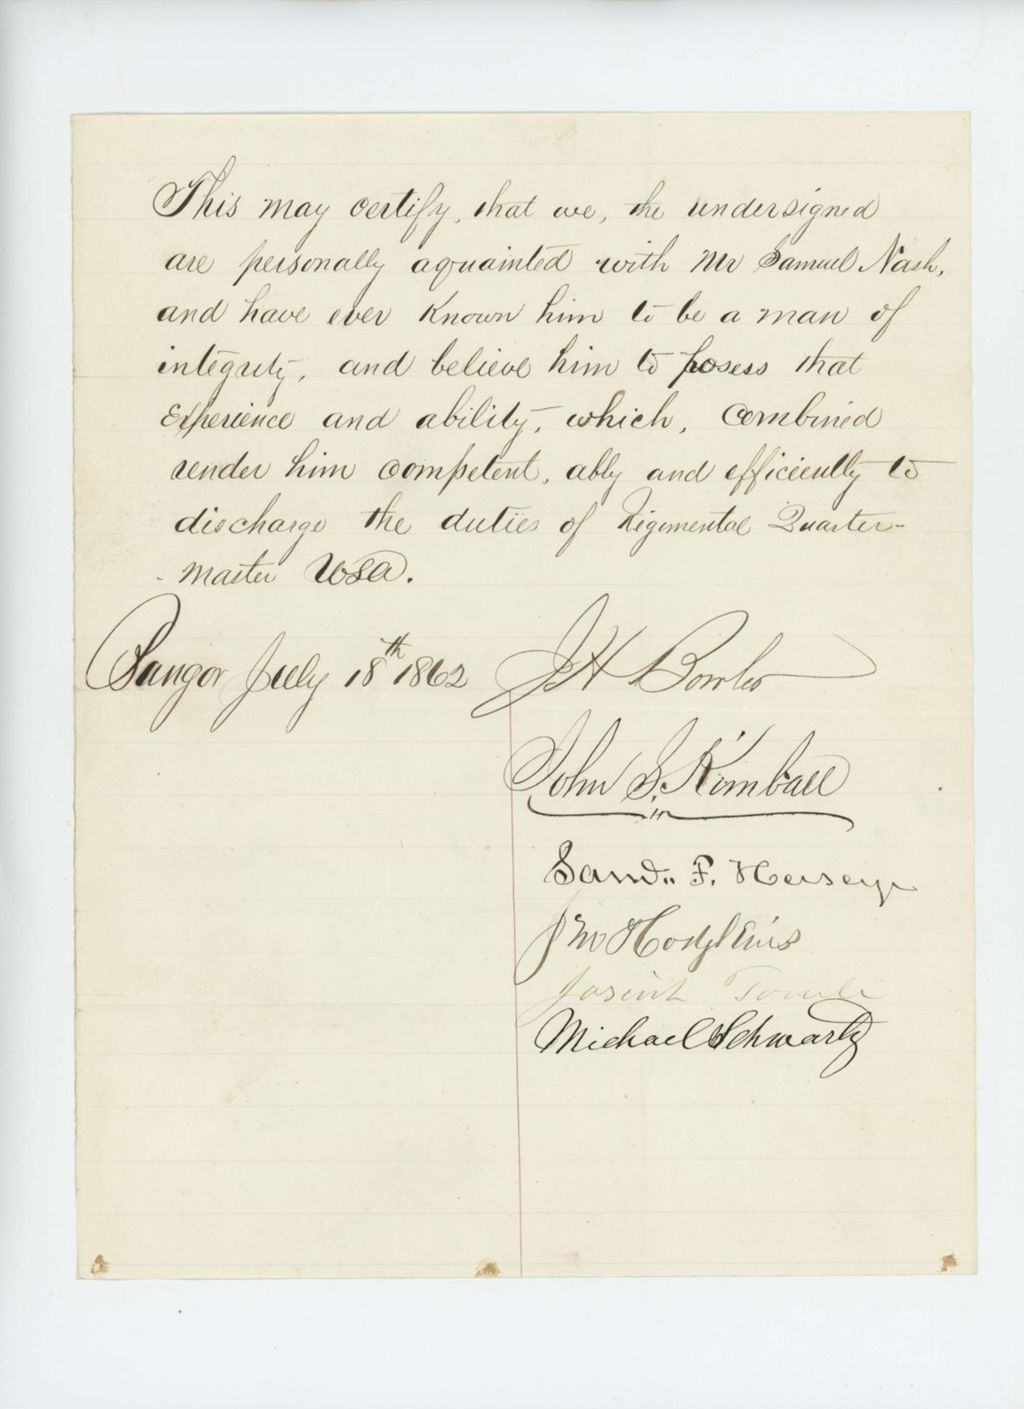 This may certify, that we, the undersigned
are personally aquainted with Mr Samuel Nash,
and have ever known him to be a man of
integrity, and believe him to posess that
experience and ability, which, combined
render him competent, ably and efficiently to
discharge the duties of Regimental Quarter-
-master USA.
Bangor July 18th 1862
J H Bowler
John S. Kimball
Saml. F. Hersey
Hodgkins
Josiah Towle
Michael Schwartz